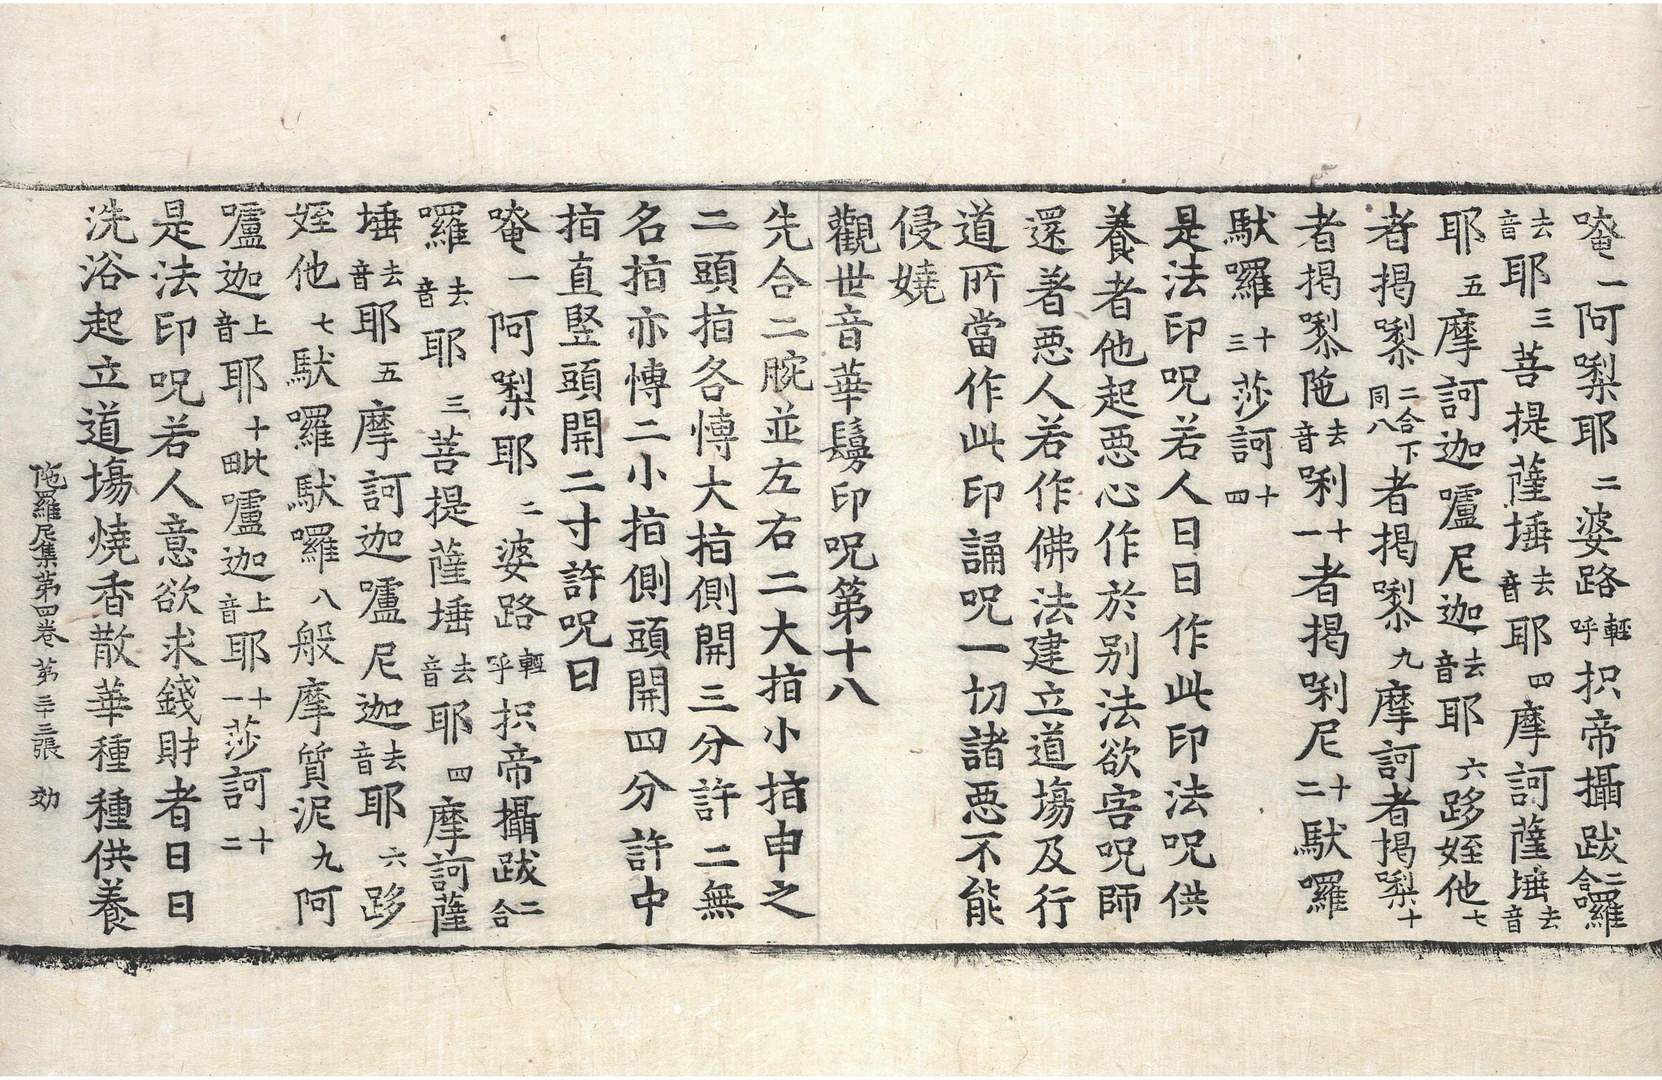 唵一阿㗚耶二婆路輕呼抧帝攝跋二合囉
去音耶三菩提薩埵去音耶四摩訶薩埵去音
耶五摩訶迦嚧尼迦去音耶六跢姪他七
者揭嚟二合下同八者揭嚟九摩訶者揭㗚十
者揭嚟陁去音唎十一者揭唎尼十二馱囉
馱囉十三莎訶十四
是法印呪若人日日作此印法呪供
養者他起惡心作於別法欲害呪師
還著惡人若作佛法建立道場及行
道所當作此印誦呪一切諸惡不能
侵嬈
觀世音華鬘印呪第十八
先合二腕並左右二大指小指申之
二頭指各慱大指側開三分許二無
名指亦慱二小指側頭開四分許中
指直竪頭開二寸許呪曰
唵一阿㗚耶二婆路輕呼抧帝攝跋二合
囉去音耶三菩提薩埵去音耶四摩訶薩
埵去音耶五摩訶迦嚧尼迦去音耶六跢
姪他七馱囉馱囉八般摩質泥九阿
嚧迦上音耶十毗嚧迦上音耶十一莎訶十二
是法印呪若人意欲求錢財者日日
洗浴起立道場燒香散華種種供養
陁羅尼集第四卷 第三十三張 効